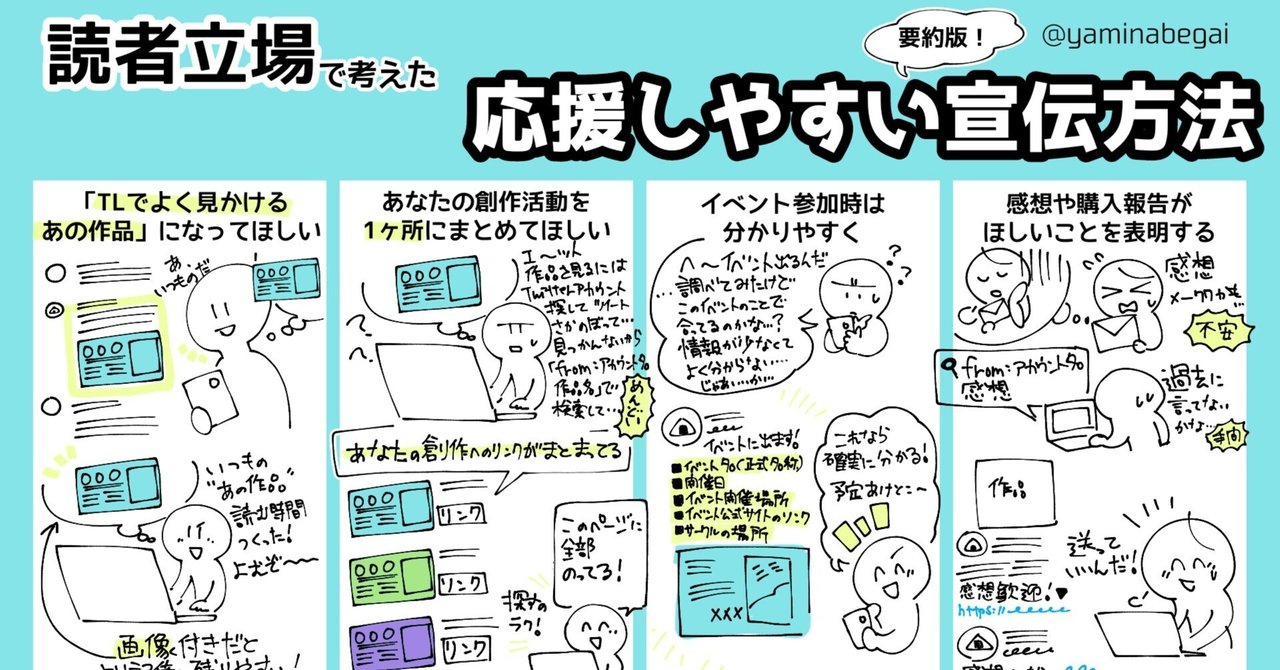 読者立場で考えた
要約版!
@yaminabegai
応援しやすい宣伝方法
「TLでよく見かける
あの作品」になってほしい
あ、
いつものだ
いつもの
"あの作品"
読む時間
つくった!
よむぞ〜〜
画像付きだと
あなたの創作活動を
1ヶ所にまとめてほしい
エ〜ット
作品を見るには
Twitterアカウント
探してツイート
さかのぼって…
見つかんないから
「from:アカウント名
作品名」で
検索して…
めんどい
あなたの創作へのリンクがまとまってる
リンク
リンク
リンク
このページに
全部
のってる!
探すの
ラク!
イベント参加時は
分かりやすく
へ〜イベント出るんだ
…調べてみたけど
このイベントのことで
合ってるのかな…?
情報が少なくて
よく分からない…
じゃあ…か…
イベントに出ます!
■イベント名(正式名称)
■開催日
■イベント開催場所
■イベント公式サイトのリンク
■サークルの場所
XXX
これなら
確実に分かる!
予定あけとこ〜
感想や購入報告が
ほしいことを表明する
感想
メーワクかも…
不安
from:アカウント名
感想
過去に
言ってない
かな…
手間
作品
送って
いいんだ!
感想歓迎!♥
https://